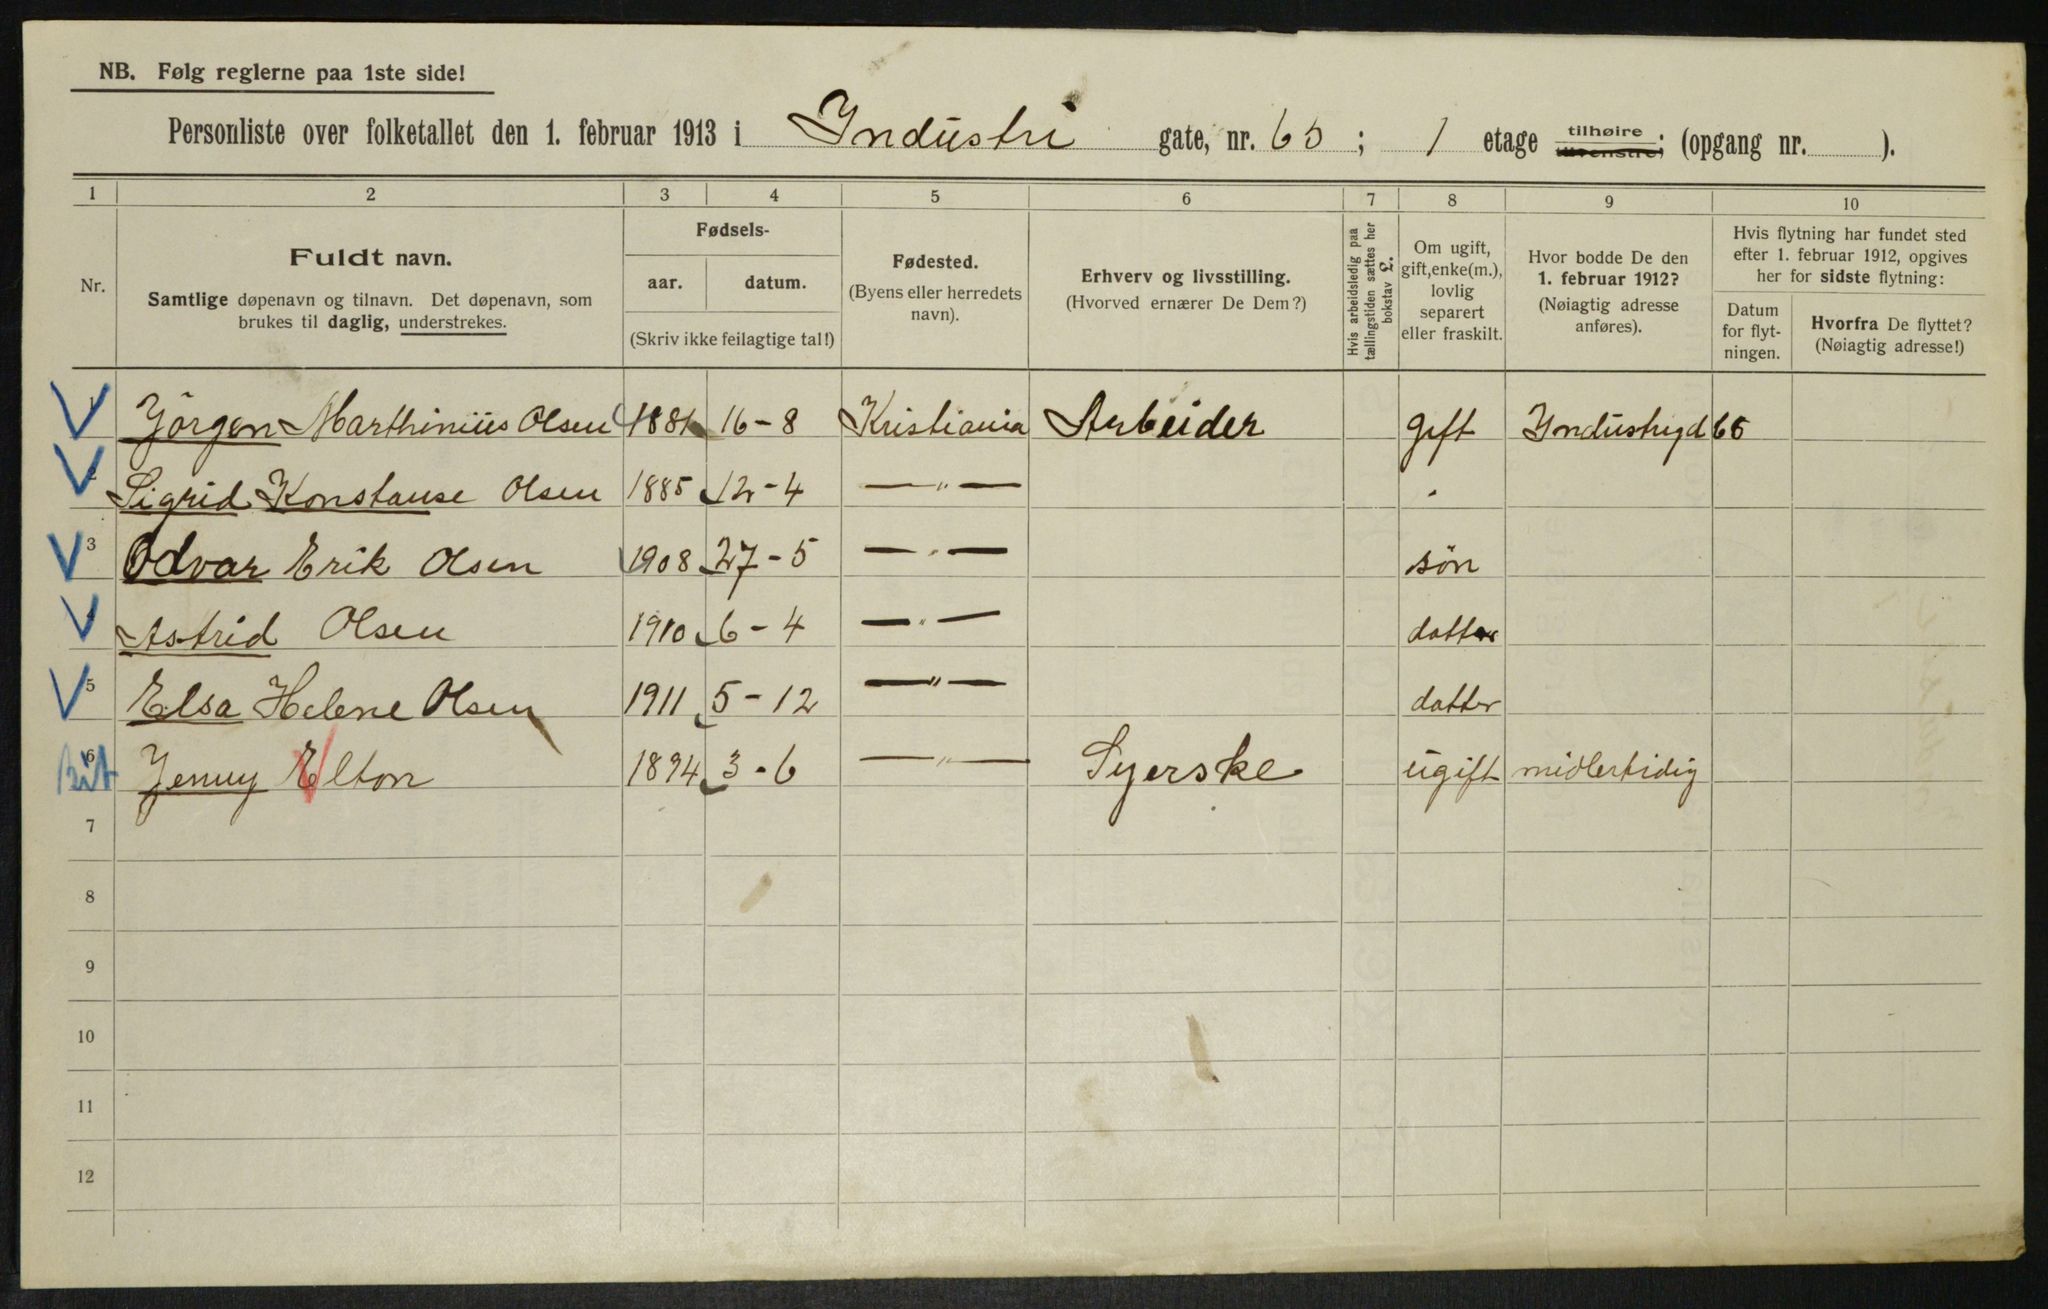 NB. Følg reglerne paa 1ste side!
Personliste over folketallet den 1. februar 1913 i Industri gate, nr. 65; 1 etage tilhøire tilvenstre; (opgang nr. ).
1 2 3 4 5 6 7 8 9 10
Nr.
Fuldt navn.
Samtlige døpenavn og tilnavn. Det døpenavn, som
brukes til daglig, understrekes.
Fødsels-
aar. datum.
(Skriv ikke feilagtige tal!)
Fødested.
(Byens eller herredets
navn).
Erhverv og livsstilling.
(Hvorved ernærer De Dem?)
Hvis arbeidsledig paa
tællingstiden sættes her
bokstav L.
Om ugift,
gift, enke(m.),
lovlig
separert
eller fraskilt.
Hvor bodde De den
1. februar 1912?
(Nøiagtig adresse
anføres).
Hvis flytning har fundet sted
efter 1. februar 1912, opgives
her for sidste flytning:
Datum
for flyt-
ningen.
Hvorfra De flyttet?
(Nøiagtig adresse!)
1 Jörgen Marthinius Olsen 1881 16-8 Kristiania Arbeider gift Industrigd 65
2 Sigrid Konstanse Olsen 1885 12-4 —"—
3 Odvar Erik Olsen 1908 27-5 —"— sön
4 Astrid Olsen 1910 6-4 —"— datter
5 Elsa Helene Olsen 1911 5-12 —"— datter
6 Jenny Elton 1894 3-6 —"— Syerske ugift midlertidig
7
8
9
10
11
12